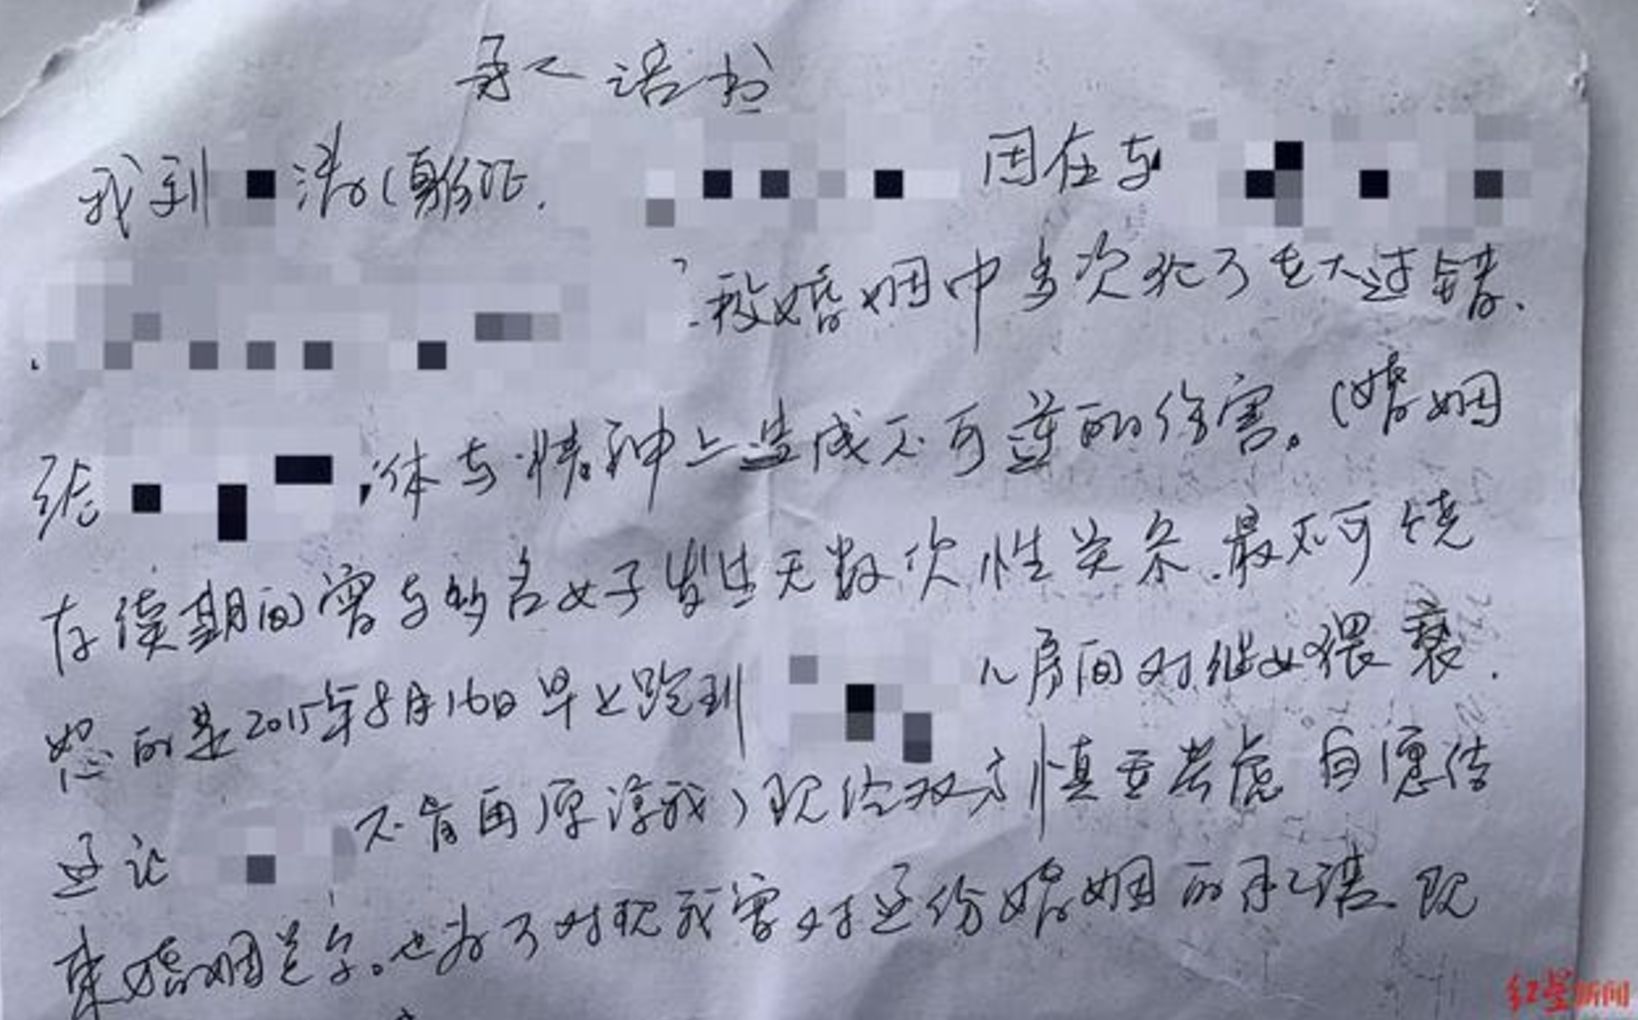 承诺书
我到 清(身份证. 因在与
段婚姻中多次犯了重大过错.
给 体与精神上造成不可逆的伤害。(婚姻
存续期间曾与多名女子发生无数次性关系.最不可饶
恕的是2015年8月16日早上跑到 儿房间对继女猥亵.
这让 不肯再原谅我)现经双方慎重考虑自愿结
束婚姻关系。也为了对现我曾对这份婚姻的承诺.现
红星新闻